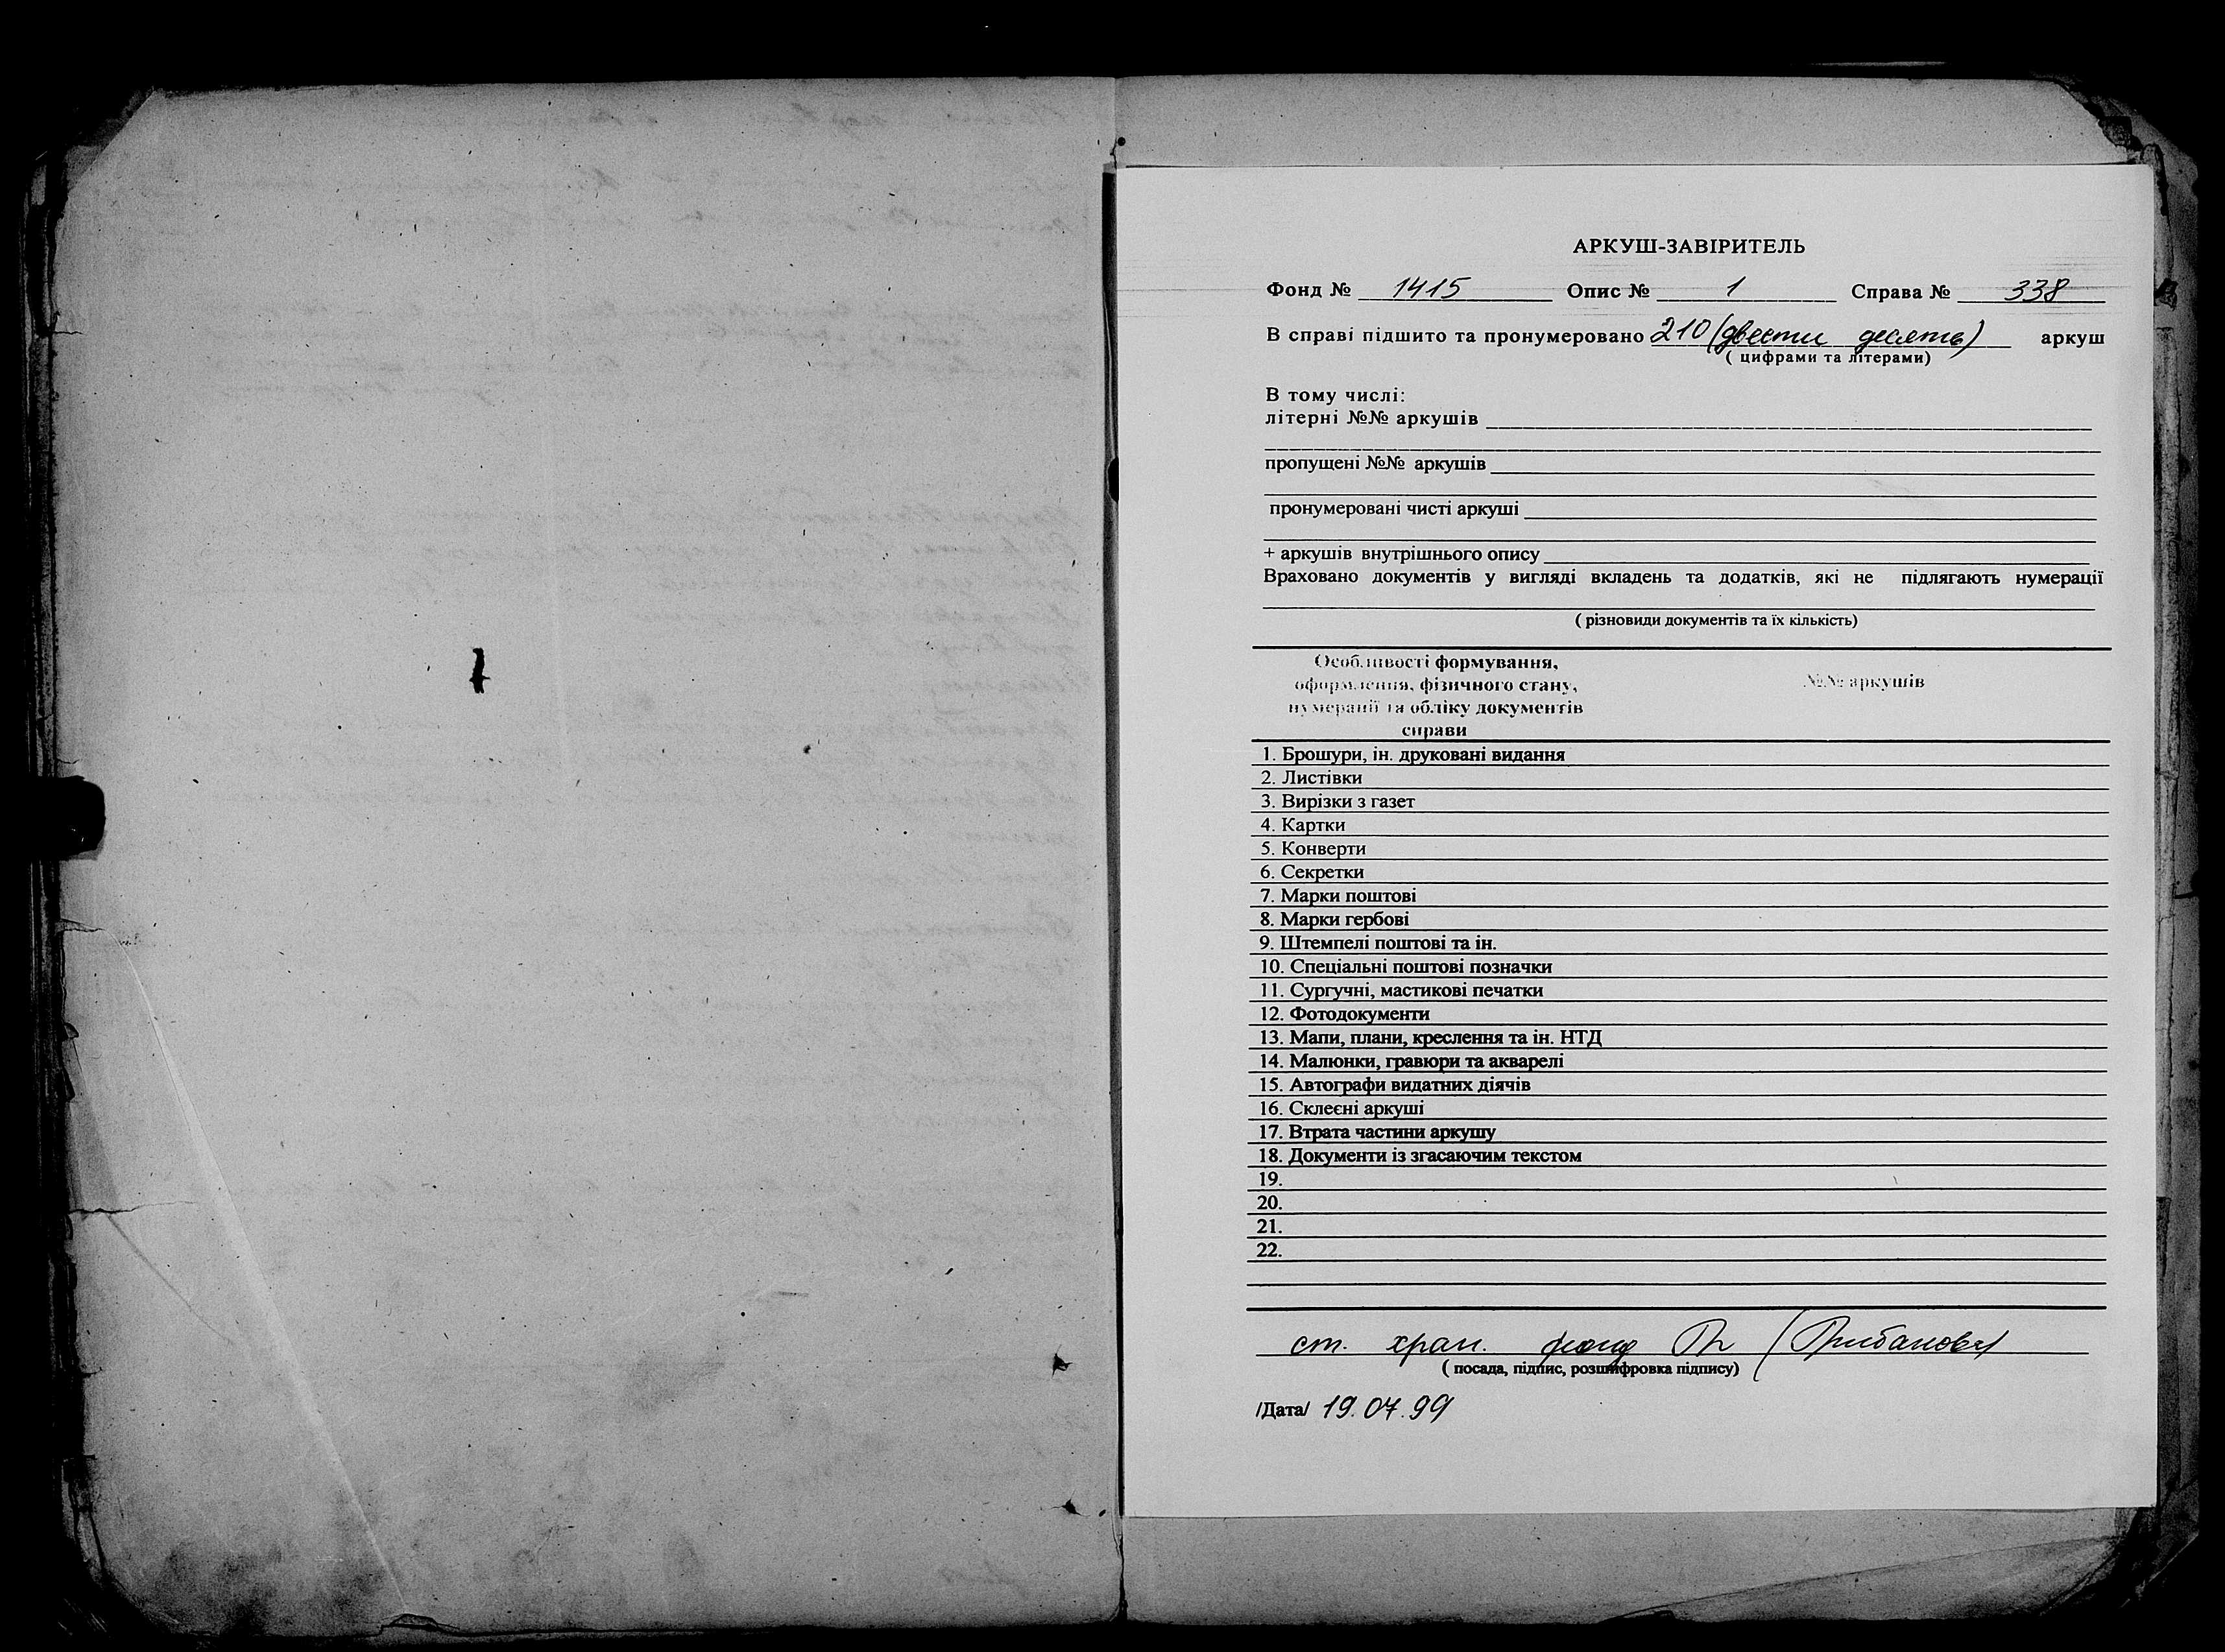 АРКУШ-ЗАВІРИТЕЛЬ
Фонд № 1415 Опис № 1 Справа № 338
В справі підшито та пронумеровано 210 (двести десять) аркуш
( цифрами та літерами)
В тому числі:
літерні №№ аркушів
пропущені №№ аркушів
пронумеровані чисті аркуші
+ аркушів внутрішнього опису
Враховано документів у вигляді вкладень та додатків, які не підлягають нумерації
( різновиди документів та їх кількість)
Особливості формування,
оформлення, фізичного стану, №№ аркушів
нумерації та обліку документів
справи
1. Брошури, ін. друковані видання
2. Листівки
3. Вирізки з газет
4. Картки
5. Конверти
6. Секретки
7. Марки поштові
8. Марки гербові
9. Штемпелі поштові та ін.
10. Спеціальні поштові позначки
11. Сургучні, мастикові печатки
12. Фотодокументи
13. Мапи, плани, креслення та ін. НТД
14. Малюнки, гравюри та акварелі
15. Автографи видатних діячів
16. Склеєні аркуші
17. Втрата частини аркушу
18. Документи із згасаючим текстом
19.
20.
21.
22.
ст. хран. фонд
( посада, підпис, розшифровка підпису)
/Дата/ 19.07.99